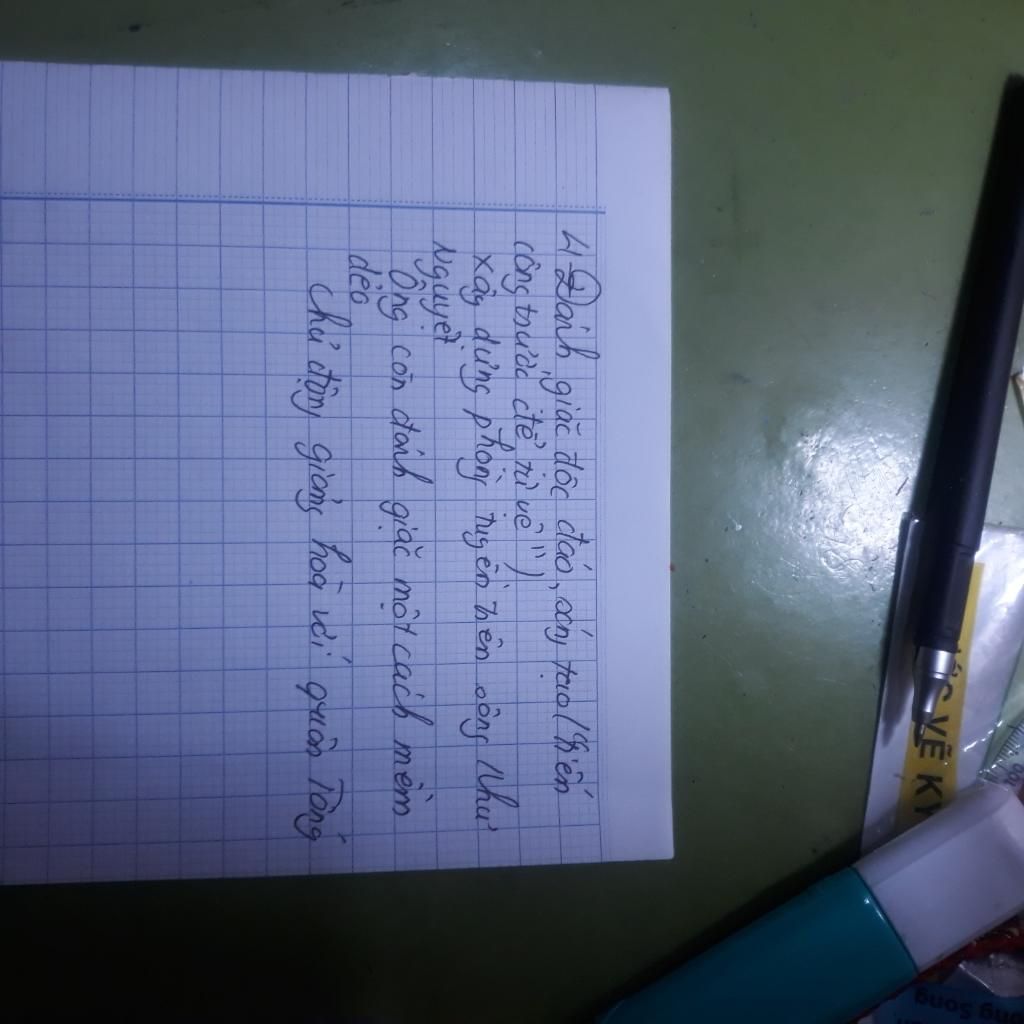 4. Đánh giặc độc đáo, sáng tạo (tiến
công trước để tự vệ")
xây dựng phòng tuyến trên sông Như
Nguyệt
Ông còn đánh giặc một cách mềm
dẻo
Chủ động giảng hoà với quân Tống
VẼ KỸ
ong Song